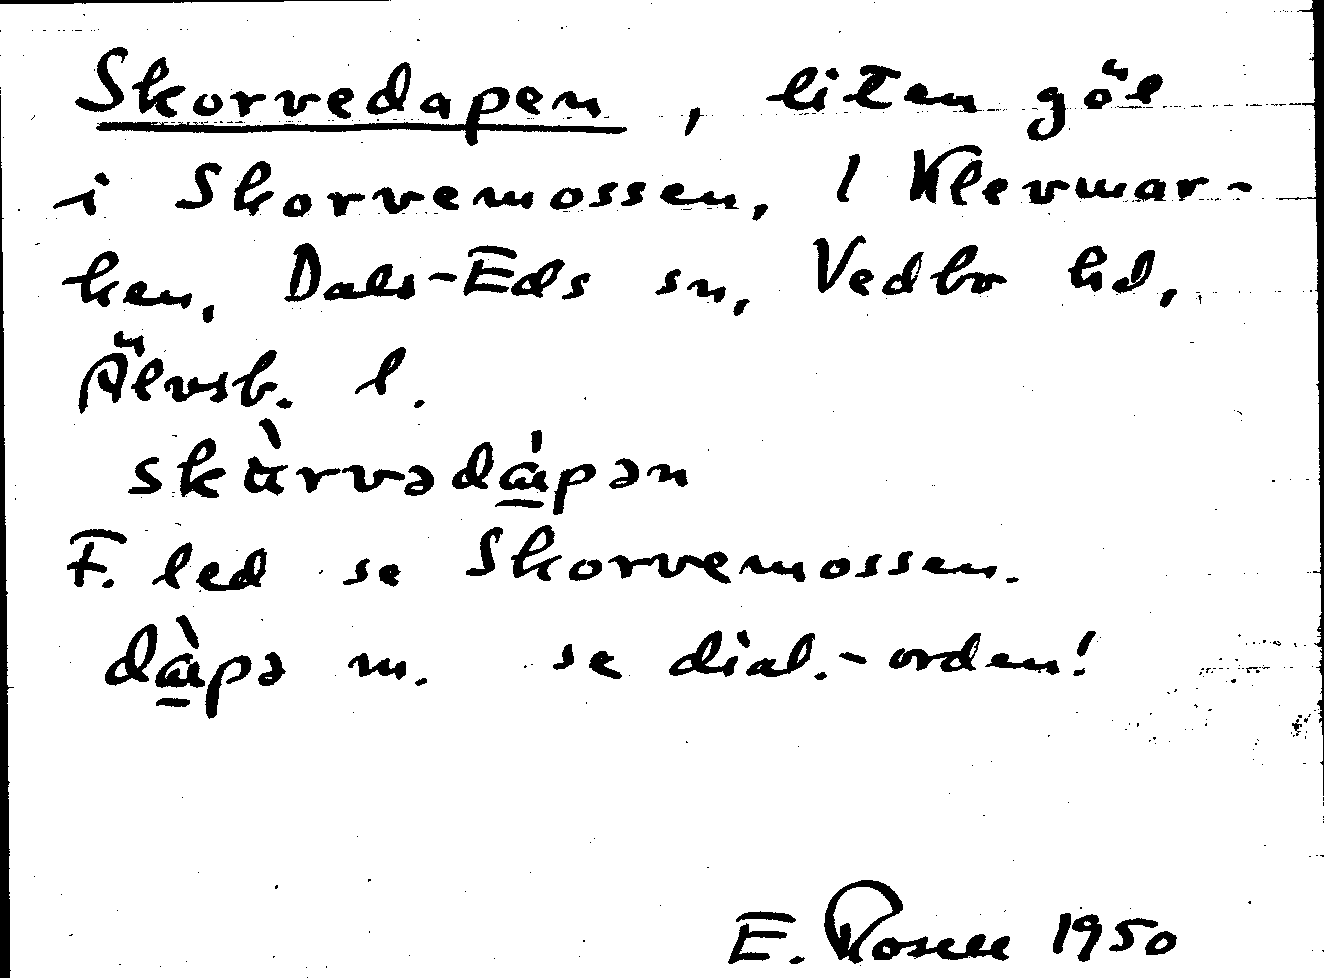 Skorvedapen, liten göl
i Skorvemossen, 1 Klevmar-
ken, Dals-Eds sn, Vedbo hd,
Älvsb. l.
skùrvədá̱pən
F. led se Skorvemossen.
dà̱pə m. se dial.-orden!
E. Rosell 1950